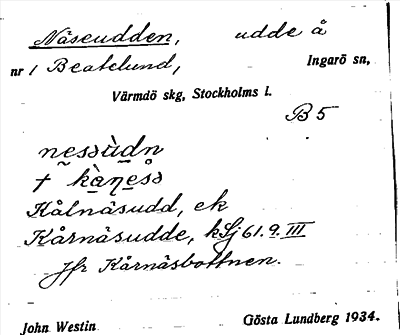 Näseudden, udde å
nr 1 Beatelund, Ingarö sn,
Värmdö skg, Stockholms l.
B 5
nessùdn
† kạnẹss
Kålnäsudd, ek
Kårnäsudde, kSj 61.9.III
Jfr Kårnäsbottnen.
John Westin Gösta Lundberg 1934.